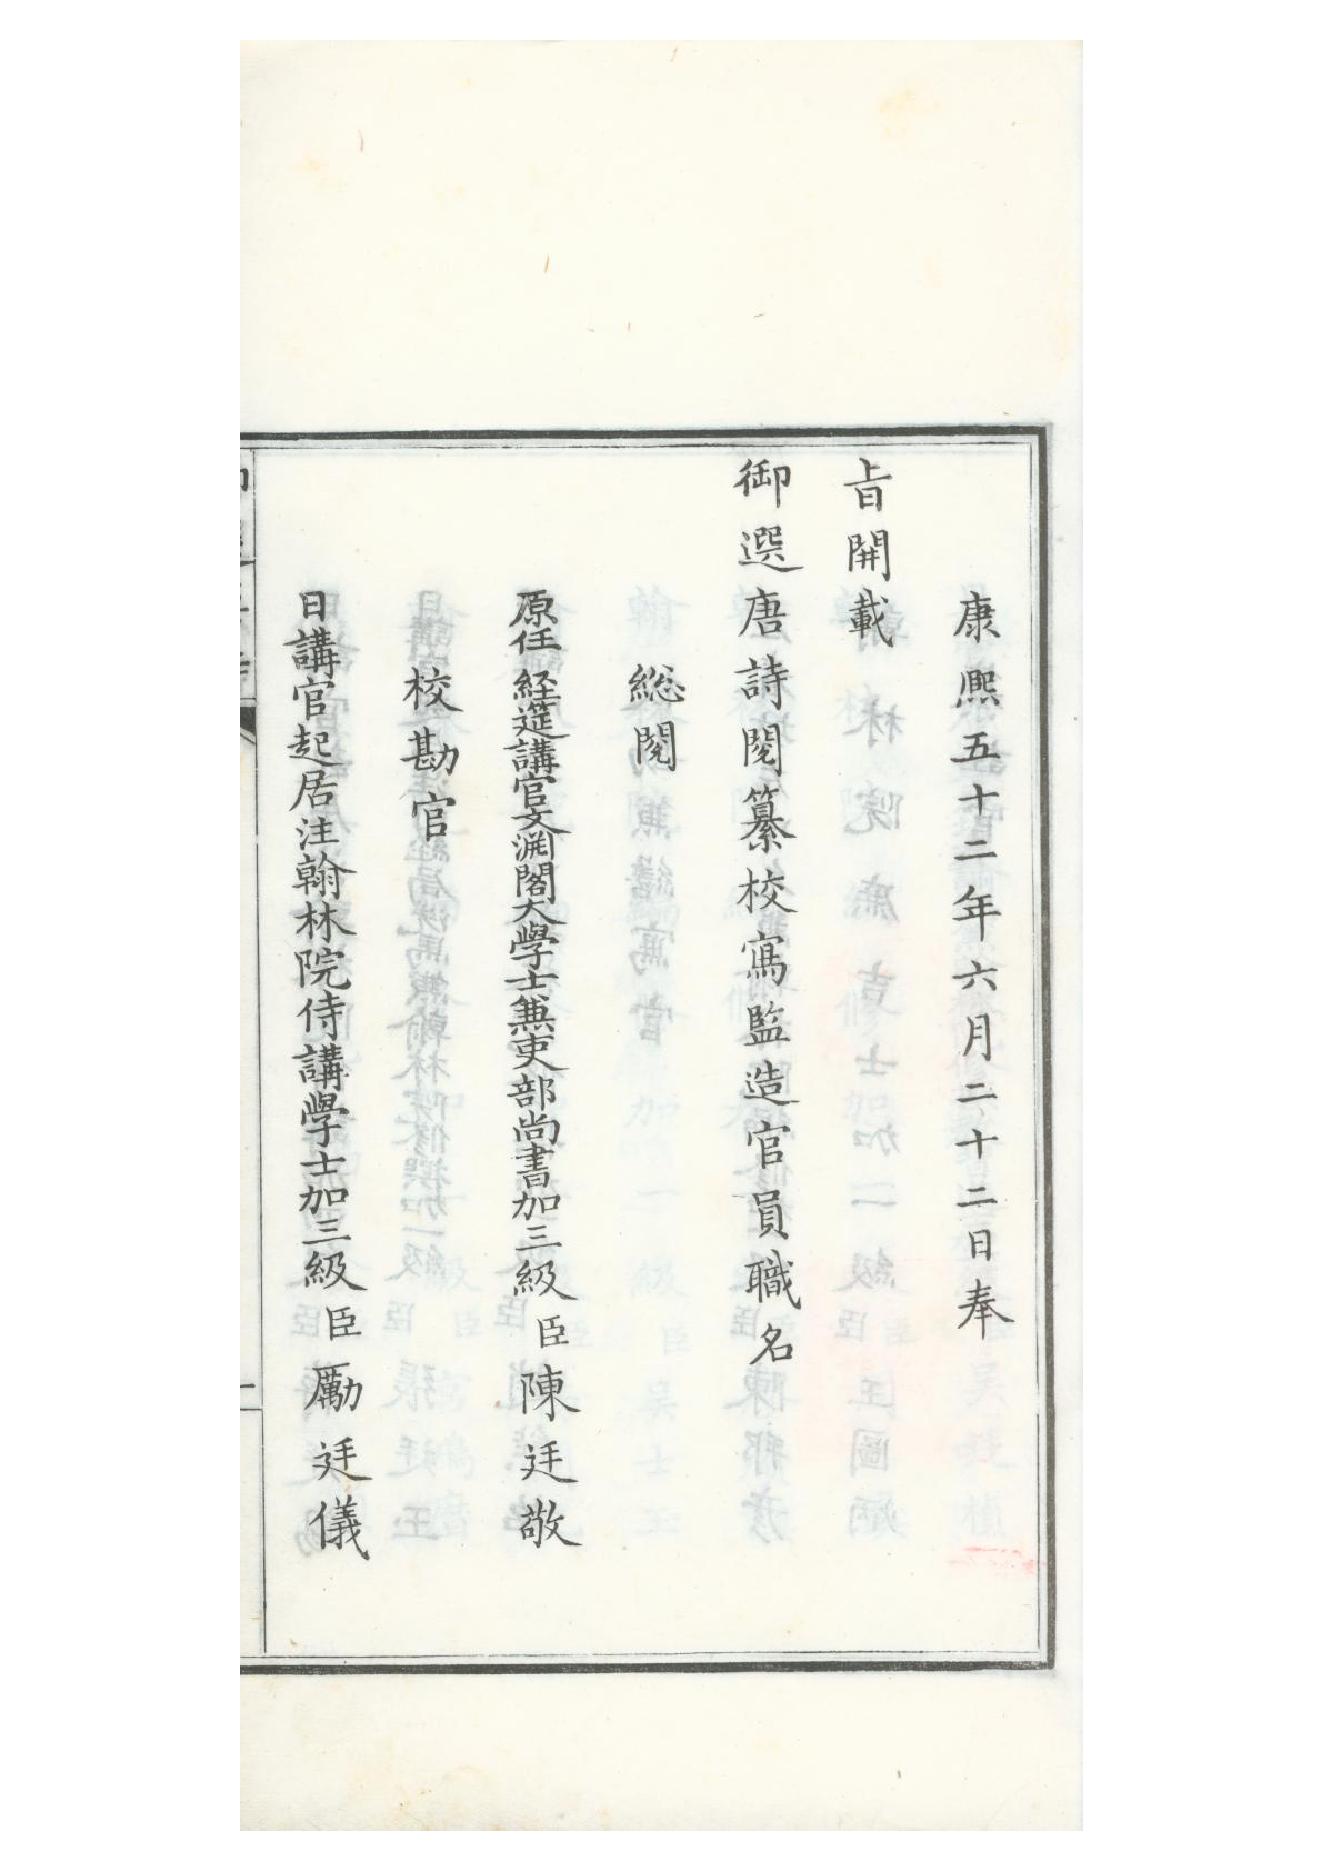 康熙五十二年六月二十二日奉
旨開載
御選唐詩閱纂校寫監造官員職名
総閱
原任經筵講官文淵閣大學士兼吏部尚書加三級臣陳廷敬
校勘官
日講官起居注翰林院侍講學士加三級臣勵廷儀